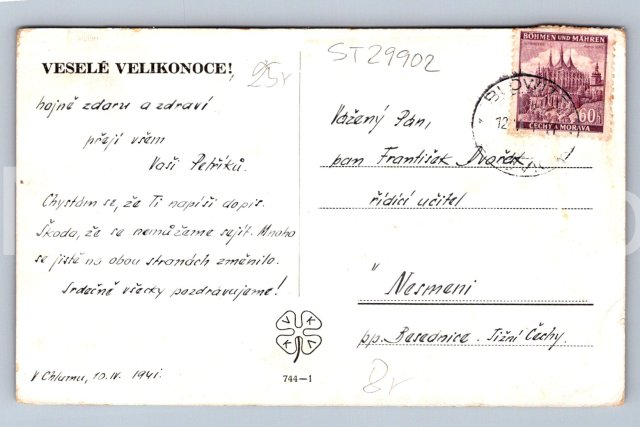 VESELÉ VELIKONOCE!
25,-
hojně zdaru a zdraví
přejí všem
Vaši Petříků.
Chystám se, že Ti napíši dopis.
Škoda, že se nemůžeme sejít. Mnoho
se jistě na obou stranách změnilo.
Srdečně všecky pozdravujeme!
V Chlumu, 10.IV. 1941.
VKVK
744—1
ST29902
BÖHMEN UND MÄHREN
60
ČECHY A MORAVA
BLOWITZ
12
Vážený Pán,
pan František Dvořák
řídící učitel
v Nesmeni
pp. Besednice. Jižní Čechy.